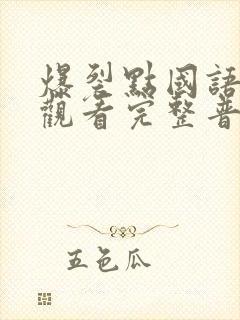 爆裂點國語
觀看完整普
五色瓜